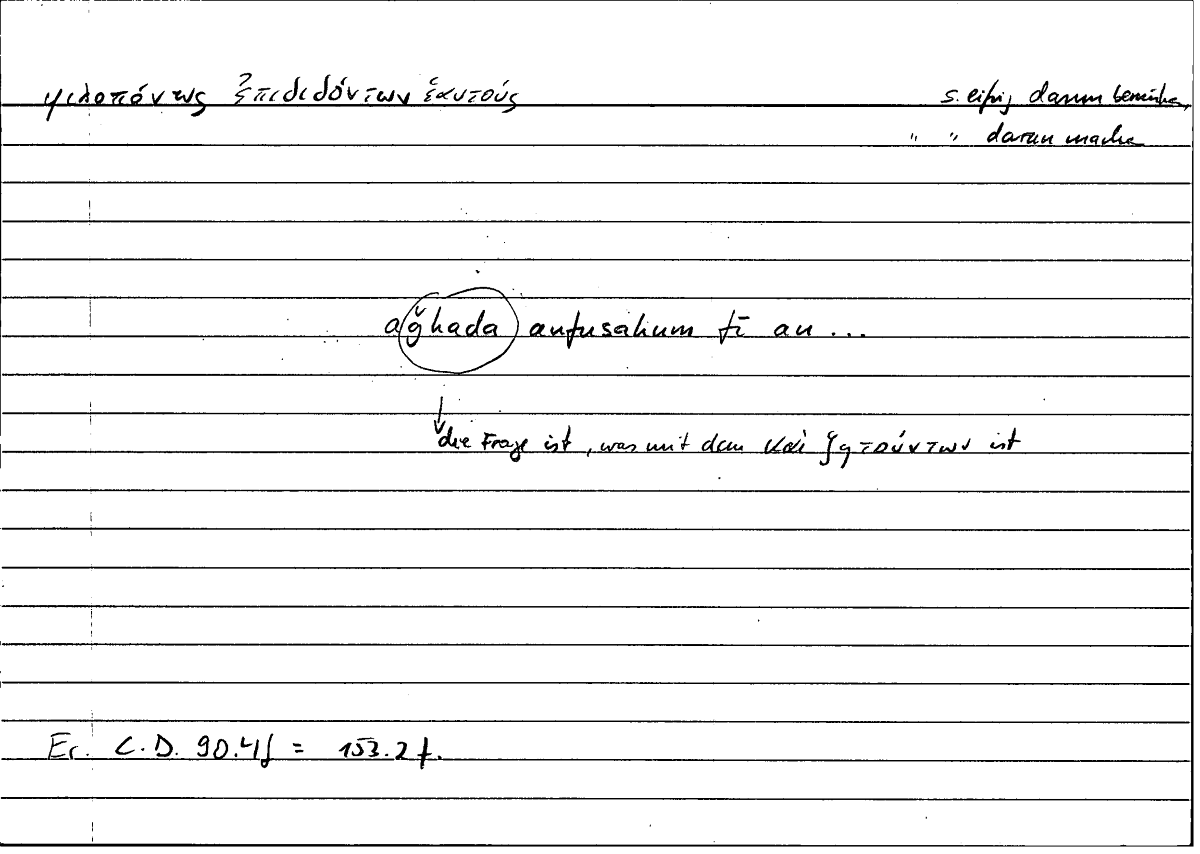 φιλοπόνως ἐπιδιδόντων ἑαυτούς
s. eifrig darum bemühen,
" " daran machen
aǧhada anfusahum fī an ...
die Frage ist, was mit dem καὶ ζητούντων ist
C.D. 90.4f = 153.2f.